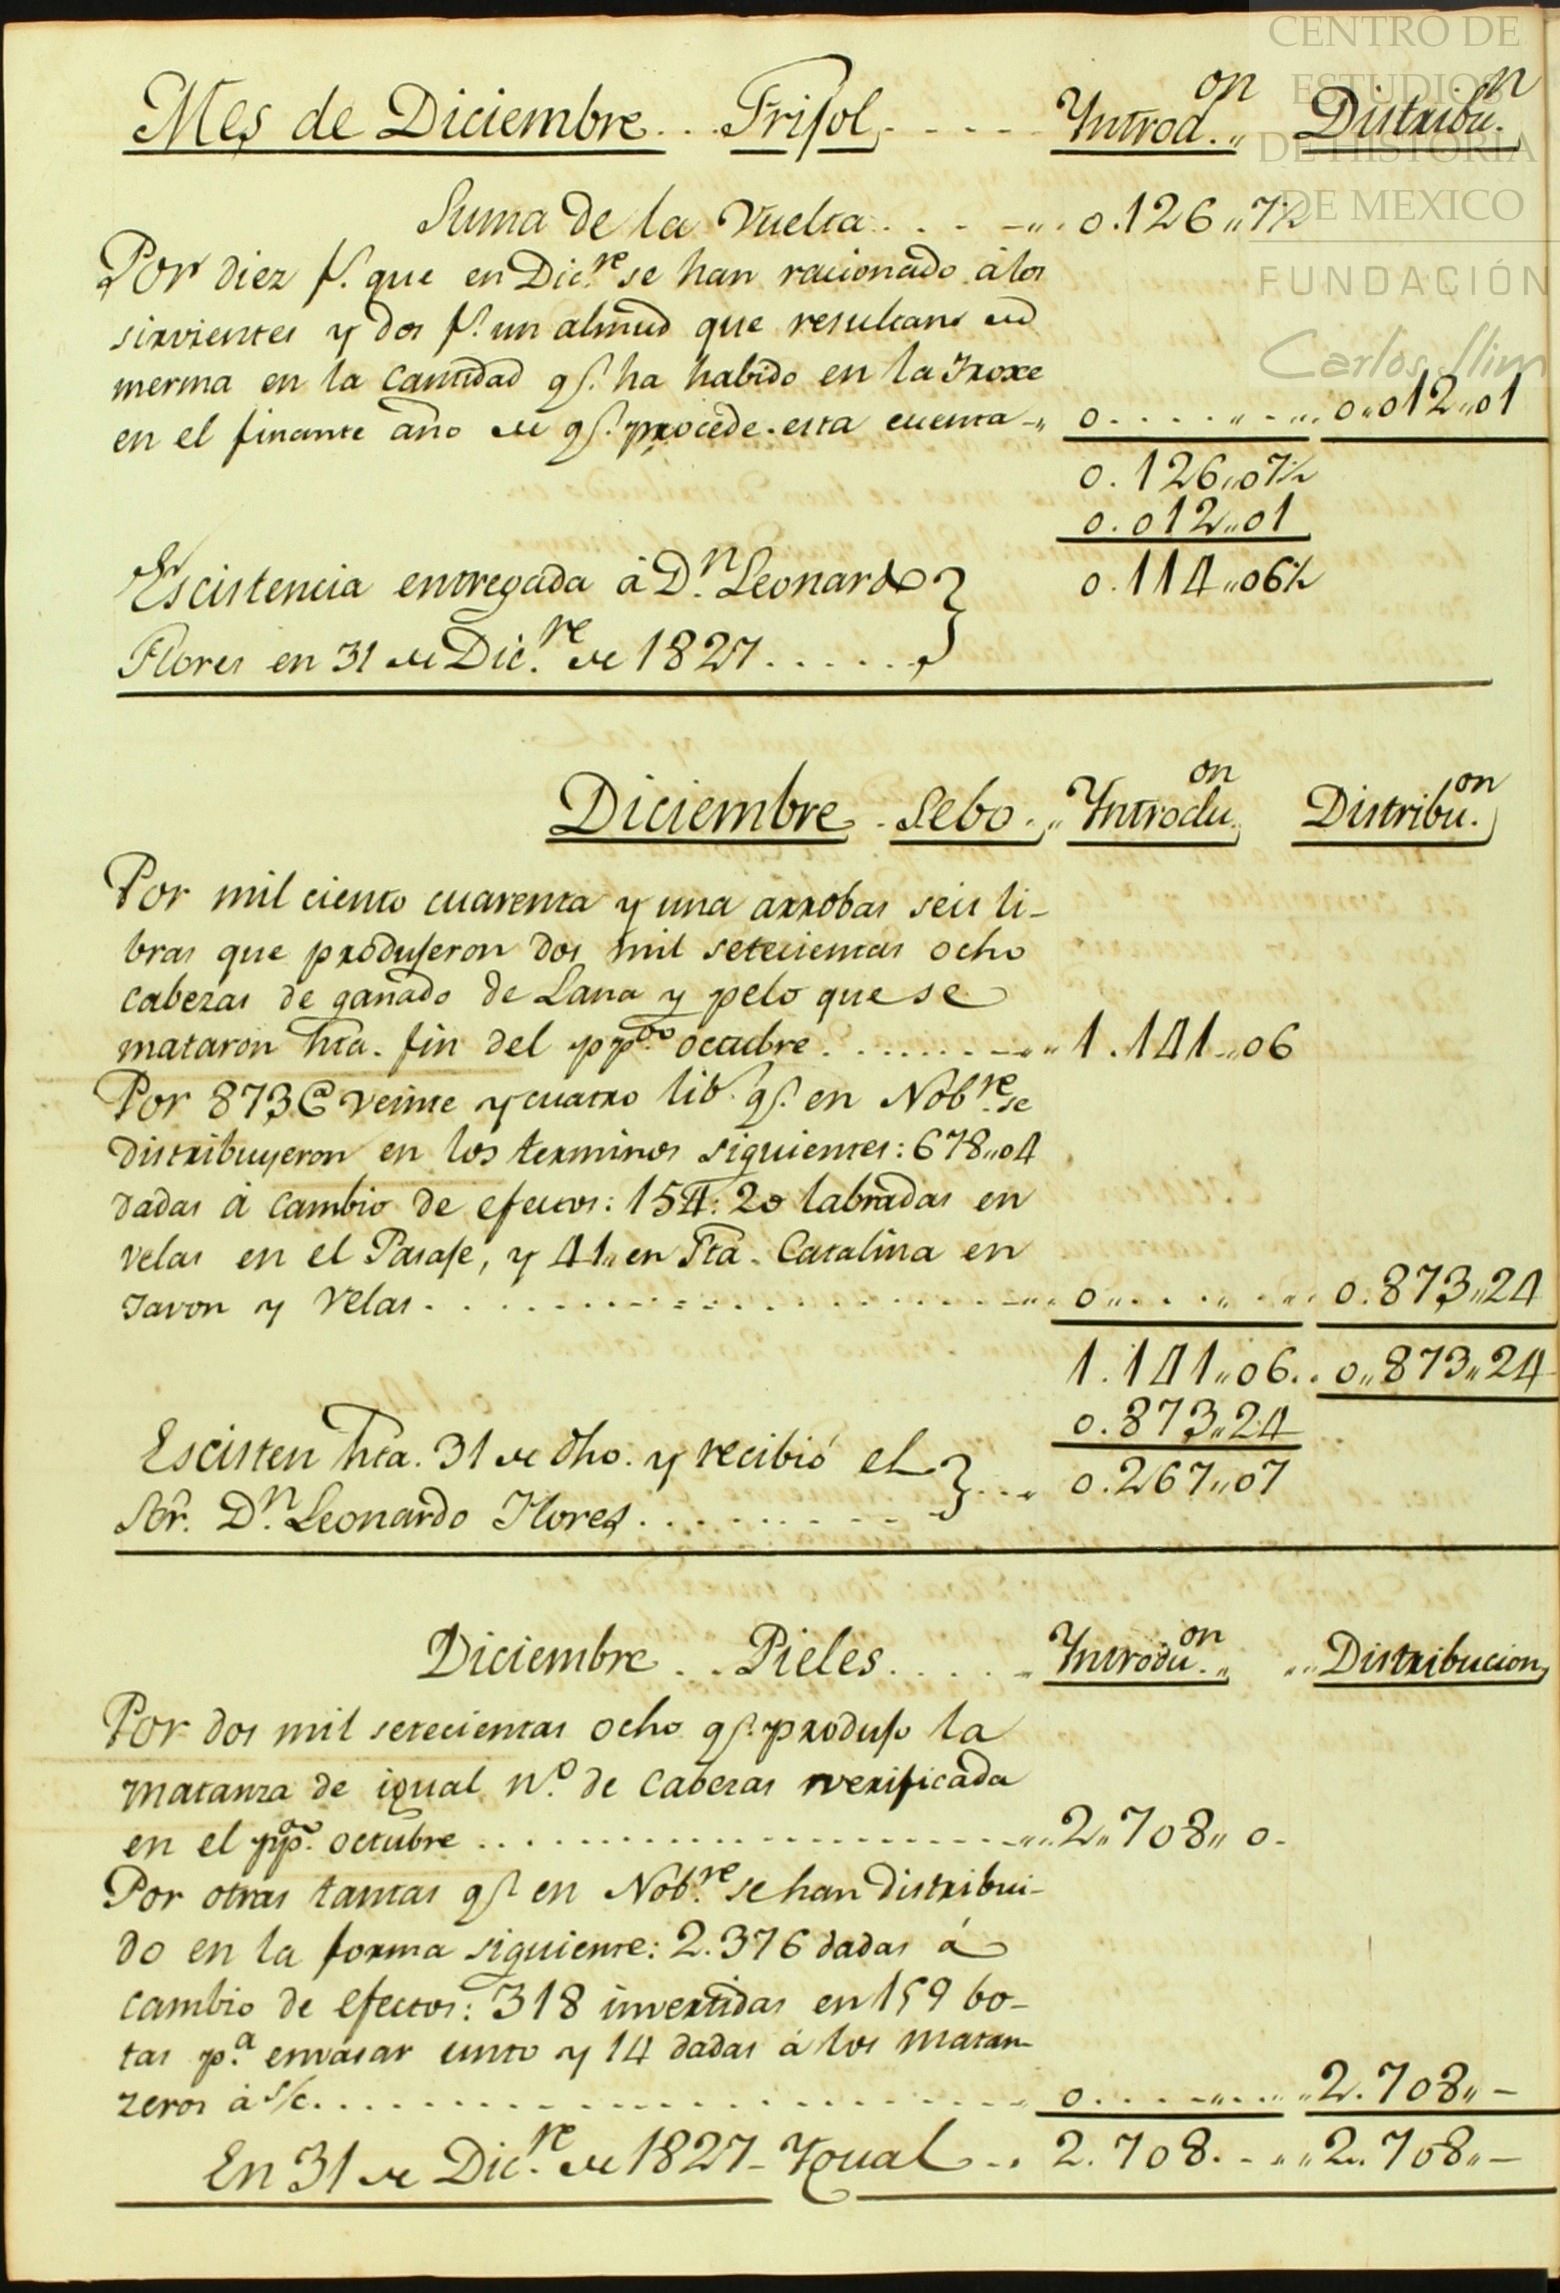 CENTRO DE
ESTUDIOS
DE HISTORIA
DE MEXICO
FUNDACIÓN
Carlos Slim
Mes de Diciembre... Frisol..... Introd.on Distribu.n
Suma de la Vuelta..... 0.126,,7½
Por diez f.s que en Dic.re se han racionado á los
sirvientes y dos f.s un almud que resultaron de
merma en la cantidad q.e ha habido en la Troxe
en el finante año de q.e procede esta cuenta-,, 0......... 0,,012,,01
0.126,,07½
0.012,,01
Escistencia entregada á D.n Leonardo } 0.114,,06½
Flores en 31 de Dic.re de 1827.......
Diciembre. Sebo.,, Introdu.on Distribu.on
Por mil ciento cuarenta y una arrobas seis li-
bras que produjeron dos mil setecientas ocho
cabezas de ganado de Lana y pelo que se
mataron hta. fin del pp.do octubre......... 1.141,,06
Por 873 @ veinte y cuatro lib.s q.e en Nob.re se
distribuyeron en los terminos siguientes: 678,,04
dadas á cambio de efectos: 154: 20 labradas en
velas en el Pasaje, y 41,, en Sta. Catalina en
Javon y Velas................ 0........ 0.873,,24
1.141,,06.. 0,,873,,24
0.873,,24
Escisten hta. 31 de dho. y recibió el }... 0.267,,07
Sõr. D.n Leonardo Flores..........
Diciembre... Pieles..... Introdu.on ... Distribucion
Por dos mil setecientas ocho q.e produjo la
matanza de igual N.o de Cabezas verificada
en el pp.do octubre............ 2,,708,, 0-
Por otras tantas q.e en Nob.re se han distribui-
do en la forma siguiente: 2.376 dadas á
cambio de efectos: 318 invertidas en 159 bo-
tas p.a envasar unto y 14 dadas á los matan-
zeros á s/c................ 0........ 2.708,,-
En 31 de Dic.re de 1827- Ygual... 2.708..... 2..708,,-